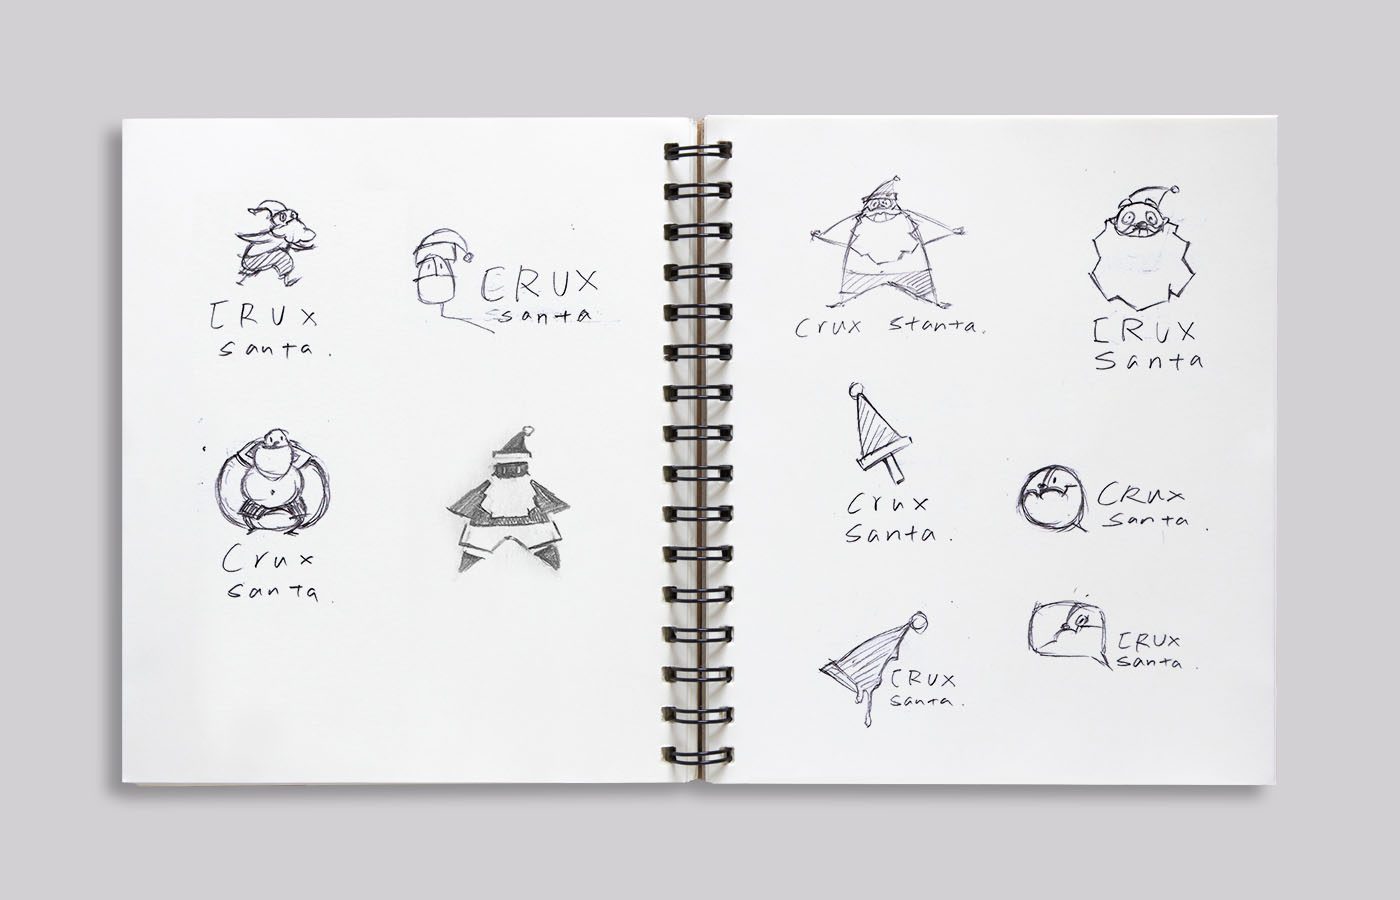 CRUX
santa.
CRUX
santa
Crux
santa.
Crux Stanta.
CRUX
Santa
Crux
Santa.
CRUX
Santa.
CRUX
Santa.
CRUX
Santa.